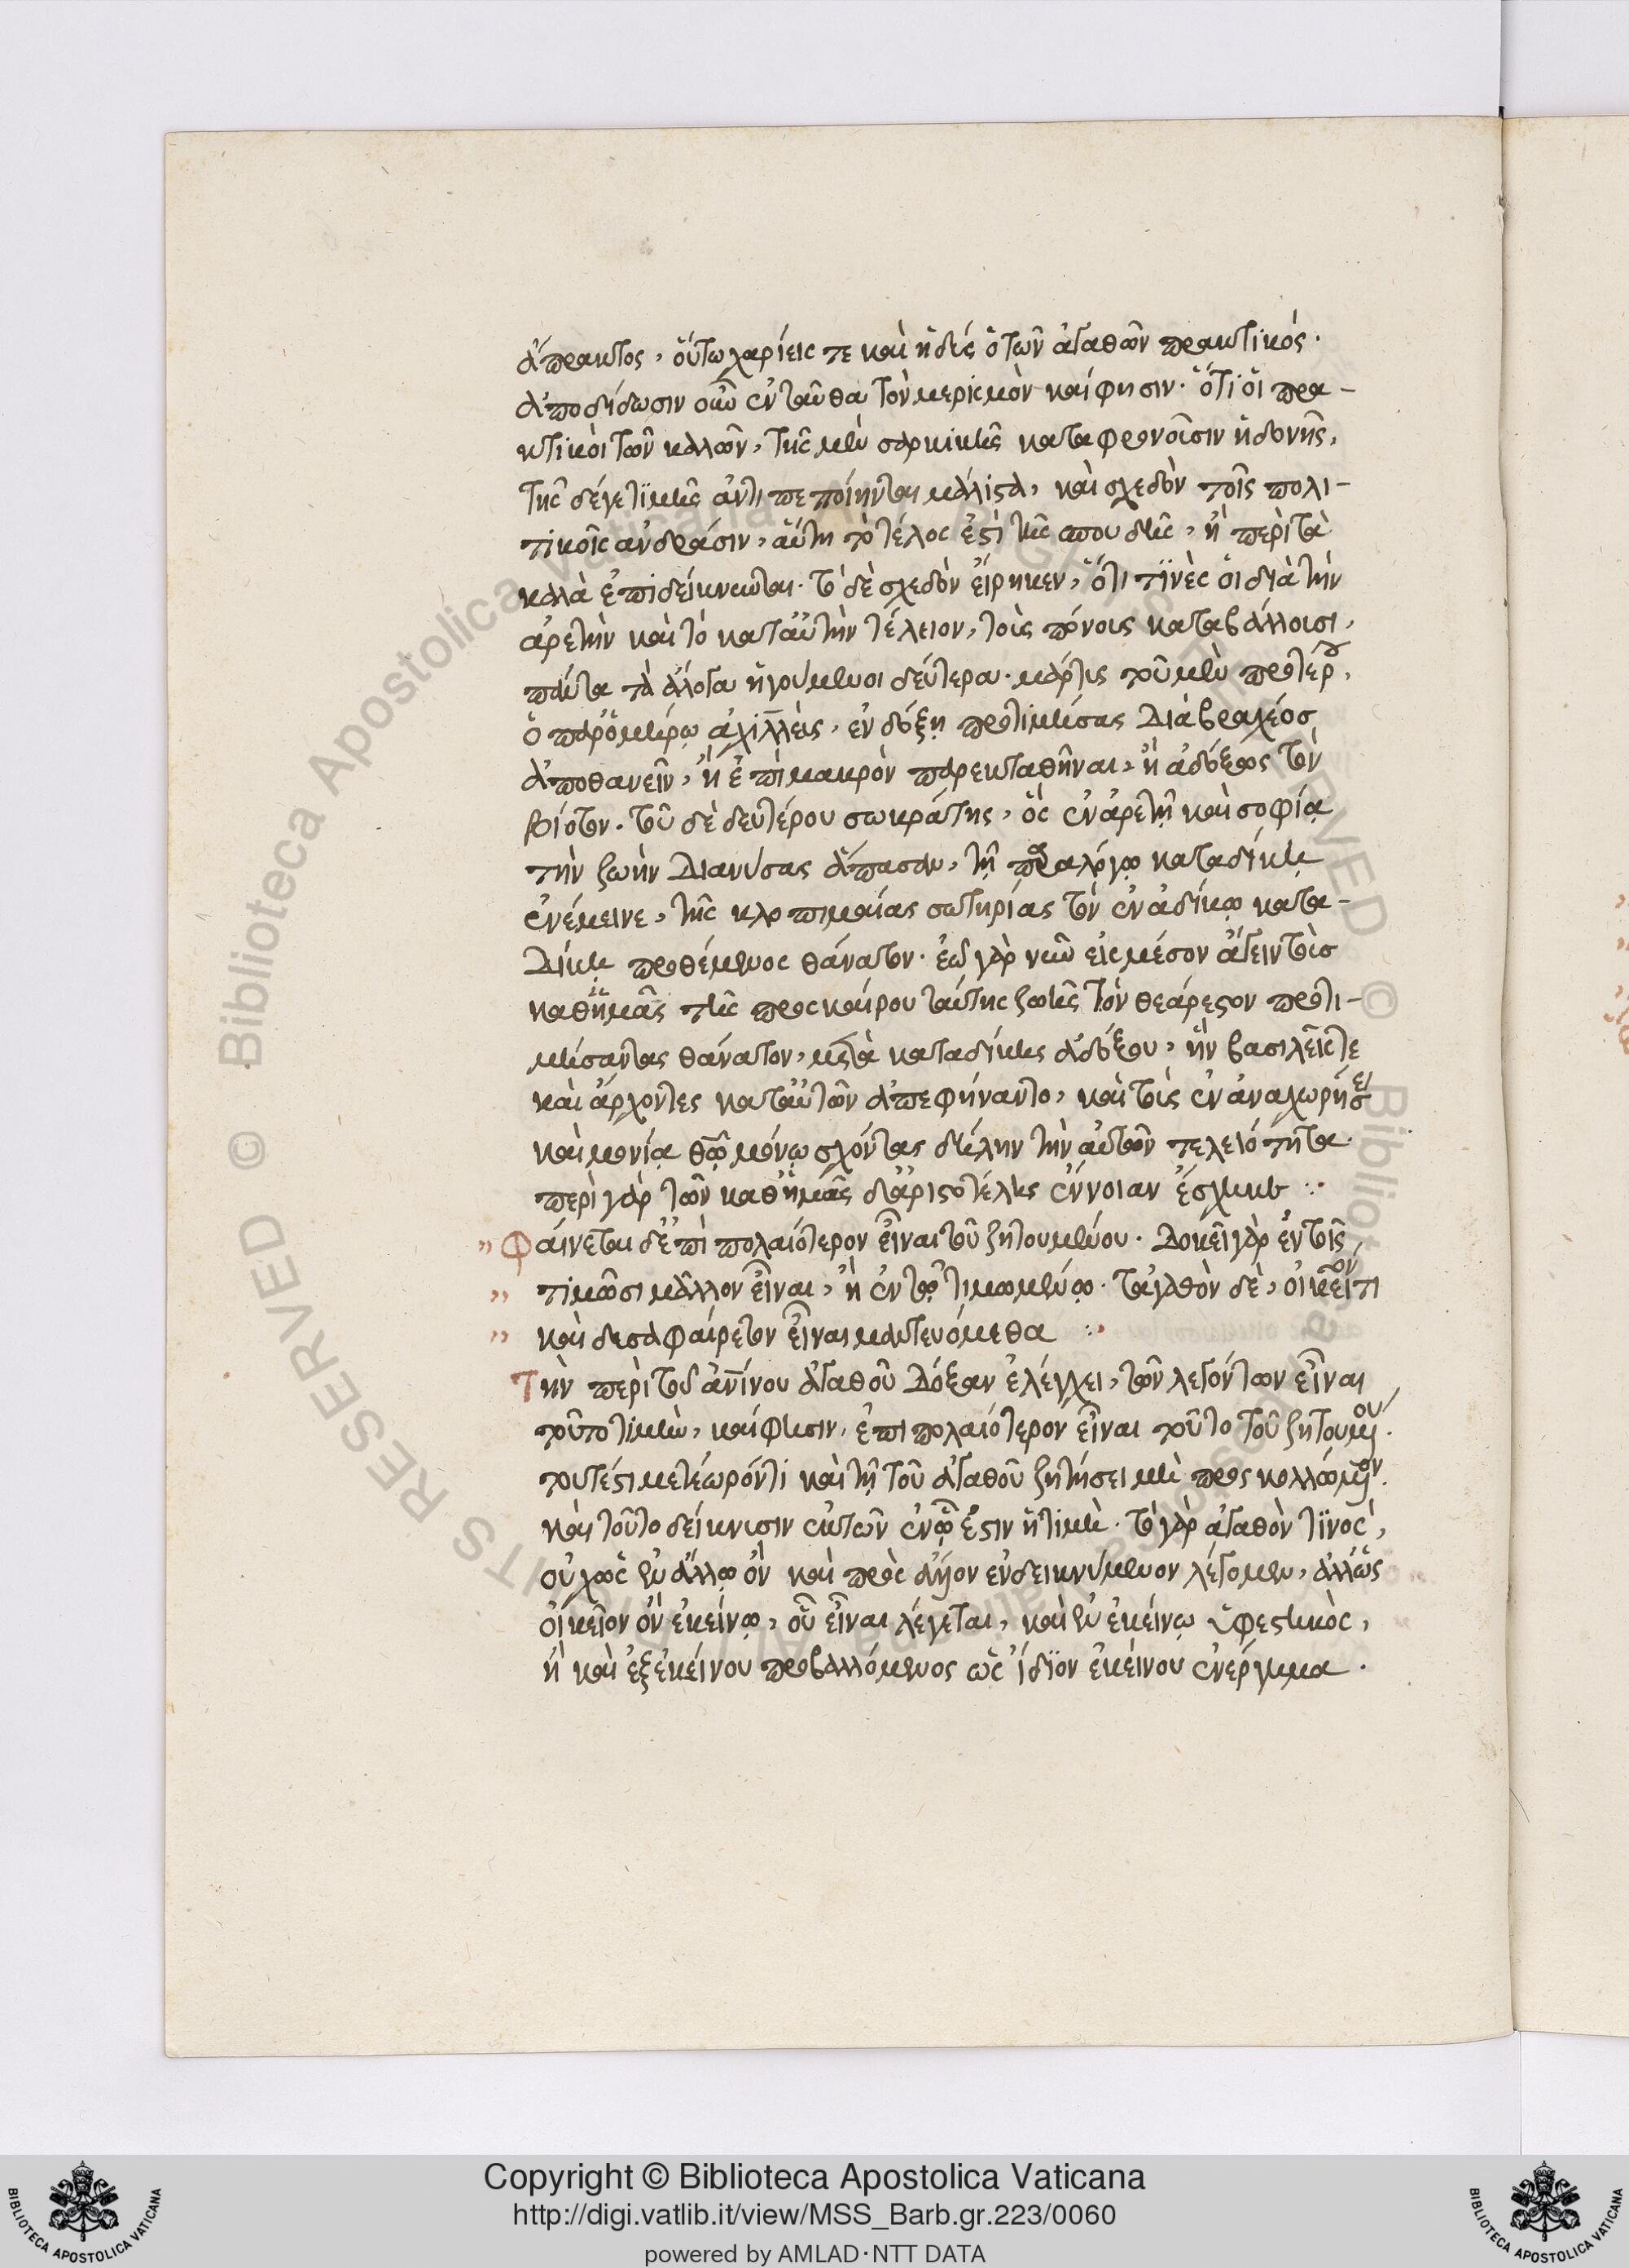 ἄπρακτος, οὕτω χαρίεις τε καὶ ἡδὺς ὁ τῶν ἀγαθῶν πρακτικός.
ἀποδίδωσιν οὖν ἐνταῦθα τὸν μερισμὸν καί φησιν. ὅτι οἱ πρα-
κτικοὶ τῶν καλῶν, τῆς μὲν σαρκικῆς καταφρονοῦσιν ἡδονῆς,
τῆς δέ γε τιμῆς ἀντιπεποίηνται μάλιστα, καὶ σχεδὸν τοῖς πολι-
τικοῖς ἀνδράσιν, αὕτη τὸ τέλος ἐστὶ τῆς σπουδῆς, ἣ περὶ τὰ
καλὰ ἐπιδείκνυνται. τὸ δὲ σχεδὸν εἴρηκεν, ὅτι τινὲς οἱ διὰ τὴν
ἀρετὴν καὶ τὸ κατ' αὐτὴν τέλειον, τοὺς πόνους καταβάλλουσι,
πάντα τὰ ἄλογα ἡγούμενοι δεύτερα. μάρτυς τοῦ μὲν προτέρου,
ὁ παρ' ὁμήρῳ ἀχιλλεὺς, ἐν δόξῃ προτιμήσας διὰ βραχέος
ἀποθανεῖν, ἢ ἐπὶ μακρὸν παρεκταθῆναι, ἢ ἀδόξως τὸν
βίοτον. τοῦ δὲ δευτέρου σωκράτης, ὃς ἐν ἀρετῇ καὶ σοφίᾳ
τὴν ζωὴν διανύσας ἅπασαν, τῇ παραλόγῳ καταδίκῃ
ἐνέμεινε, τῆς κλοπιμαίας σωτηρίας τὸν ἐν ἀδίκῳ κατα-
δίκῃ προθέμενος θάνατον. ἐῶ γὰρ νῦν εἰς μέσον ἄγειν τοὺς
καθ' ἡμᾶς τῆς προσκαίρου ταύτης ζωῆς τὸν θεάρεστον προτι-
μήσαντας θάνατον, μετὰ καταδίκης ἀδόξου, ἣν βασιλεῖς τε
καὶ ἄρχοντες κατ' αὐτῶν ἀπεφήναντο, καὶ τοὺς ἐν ἀναχωρήσει
καὶ μονίᾳ θεῷ μόνῳ σχόντας δήλην τὴν αὐτῶν τελειότητα.
περὶ γὰρ τῶν καθ' ἡμᾶς οὐδ' ἀριστοτέλης ἔννοιαν ἔσχηκε :·
" Φαίνεται δ' ἐπιπολαιότερον εἶναι τοῦ ζητουμένου. δοκεῖ γὰρ ἐν τοῖς
" τιμῶσι μᾶλλον εἶναι, ἢ ἐν τῷ τιμωμένῳ. τἀγαθὸν δὲ, οἰκεῖόν τι
" καὶ δυσαφαίρετον εἶναι μαντευόμεθα :·
Τὴν περὶ τοῦ ἀνθρωπίνου ἀγαθοῦ δόξαν ἐλέγχει, τῶν λεγόντων εἶναι
τοῦτο τιμὴν, καί φησιν, ἐπιπολαιότερον εἶναι τοῦτο τοῦ ζητουμένου.
τουτέστι μετέωρόν τι καὶ τῇ τοῦ ἀγαθοῦ ζητήσει μὴ προσκολλώμενον.
καὶ τοῦτο δείκνυσιν ἐκ τῶν ἐν ᾧ ἐστιν ἡ τιμὴ. τὸ γὰρ ἀγαθὸν τινὸς,
οὐχ ὡς ἐν ἄλλῳ ὂν καὶ πρὸς ἄλλον ἐνδεικνύμενον λέγομεν, ἀλλ' ὡς
οἰκεῖον ὂν ἐκείνῳ, οὗ εἶναι λέγεται, καὶ ἐν ἐκείνῳ ὑφεστηκὸς,
ἢ καὶ ἐξ ἐκείνου προβαλλόμενος ὡς ἴδιον ἐκείνου ἐνέργημα.
Copyright © Biblioteca Apostolica Vaticana
http://digi.vatlib.it/view/MSS_Barb.gr.223/0060
powered by AMLAD·NTT DATA